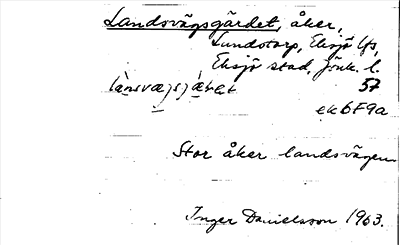 Landsvägsgärdet, åker,
Lundstorp, Eksjö lfs,
Eksjö stad, Jönk. l.
57
ek6F9a
Stor åker landsvägen
Inger Danielsson 1963.